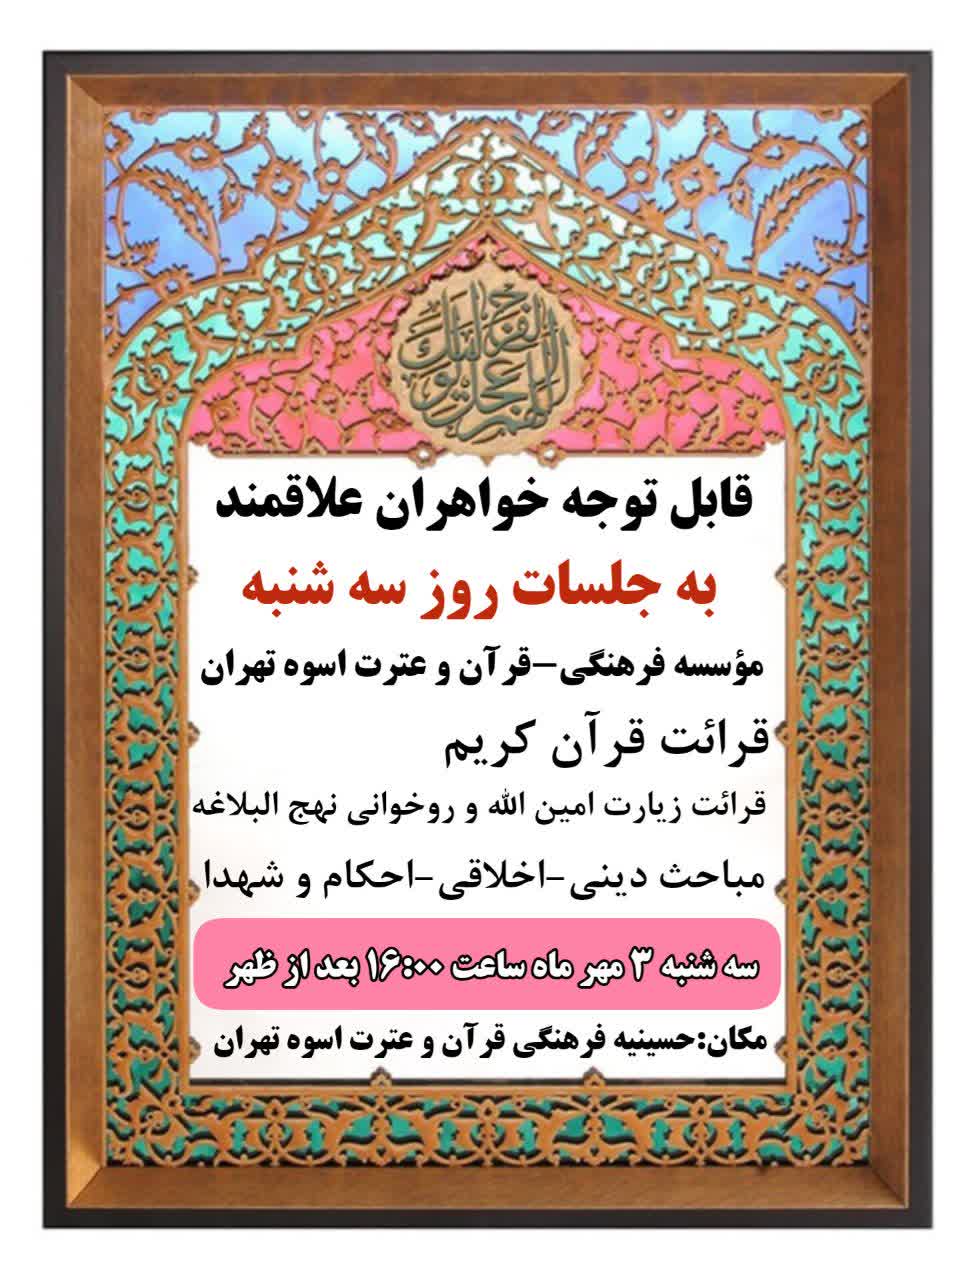 اللهم عجل لولیک الفرج
قابل توجه خواهران علاقمند
به جلسات روز سه شنبه
مؤسسه فرهنگی-قرآن و عترت اسوه تهران
قرائت قرآن کریم
قرائت زیارت امین الله و روخوانی نهج البلاغه
مباحث دینی-اخلاقی-احکام و شهدا
سه شنبه ۳ مهر ماه ساعت ۱۶:۰۰ بعد از ظهر
مکان:حسینیه فرهنگی قرآن و عترت اسوه تهران